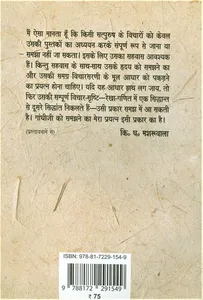 मैं ऐसा मानता हूँ कि किसी सत्पुरुष के विचारों को केवल
उसकी पुस्तकों का अध्ययन करके संपूर्ण रूप से जाना या
समझा नहीं जा सकता। इसके लिए उसका सहवास आवश्यक
है। किन्तु सहवास के साथ-साथ उसके हृदय को समझने का
और उसकी समग्र विचारसरणी के मूल आधार को पकड़ने
का प्रयत्न होना चाहिए। यदि यह आधार हाथ लग जाय, तो
फिर उसकी संपूर्ण विचार-सृष्टि—रेखा-गणित में एक सिद्धान्त
से दूसरे सिद्धान्त निकलते हैं—उसी प्रकार समझ में आ सकती
है। गांधीजी को समझने का मेरा प्रयत्न इसी प्रकार का है।
(प्रस्तावना से) कि. घ. मशरूवाला
ISBN 978-81-7229-154-9
9 788172 291549
₹ 75